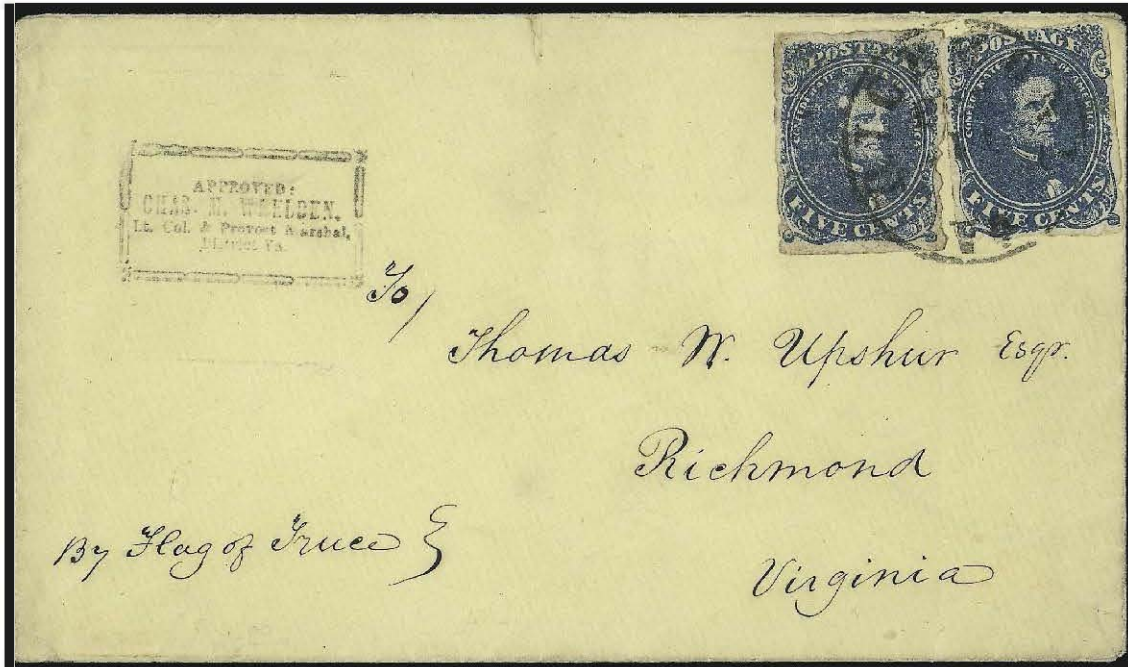 POSTAGE
CONFEDERATE STATES OF AMERICA
FIVE CENTS
POSTAGE
CONFEDERATE STATES OF AMERICA
FIVE CENTS
APPROVED:
CHAS. M. WHELDEN.
Lt. Col. & Provost Marshal,
District Va.
To/
Thomas W. Upshur Esqr.
Richmond
Virginia
By Flag of Truce